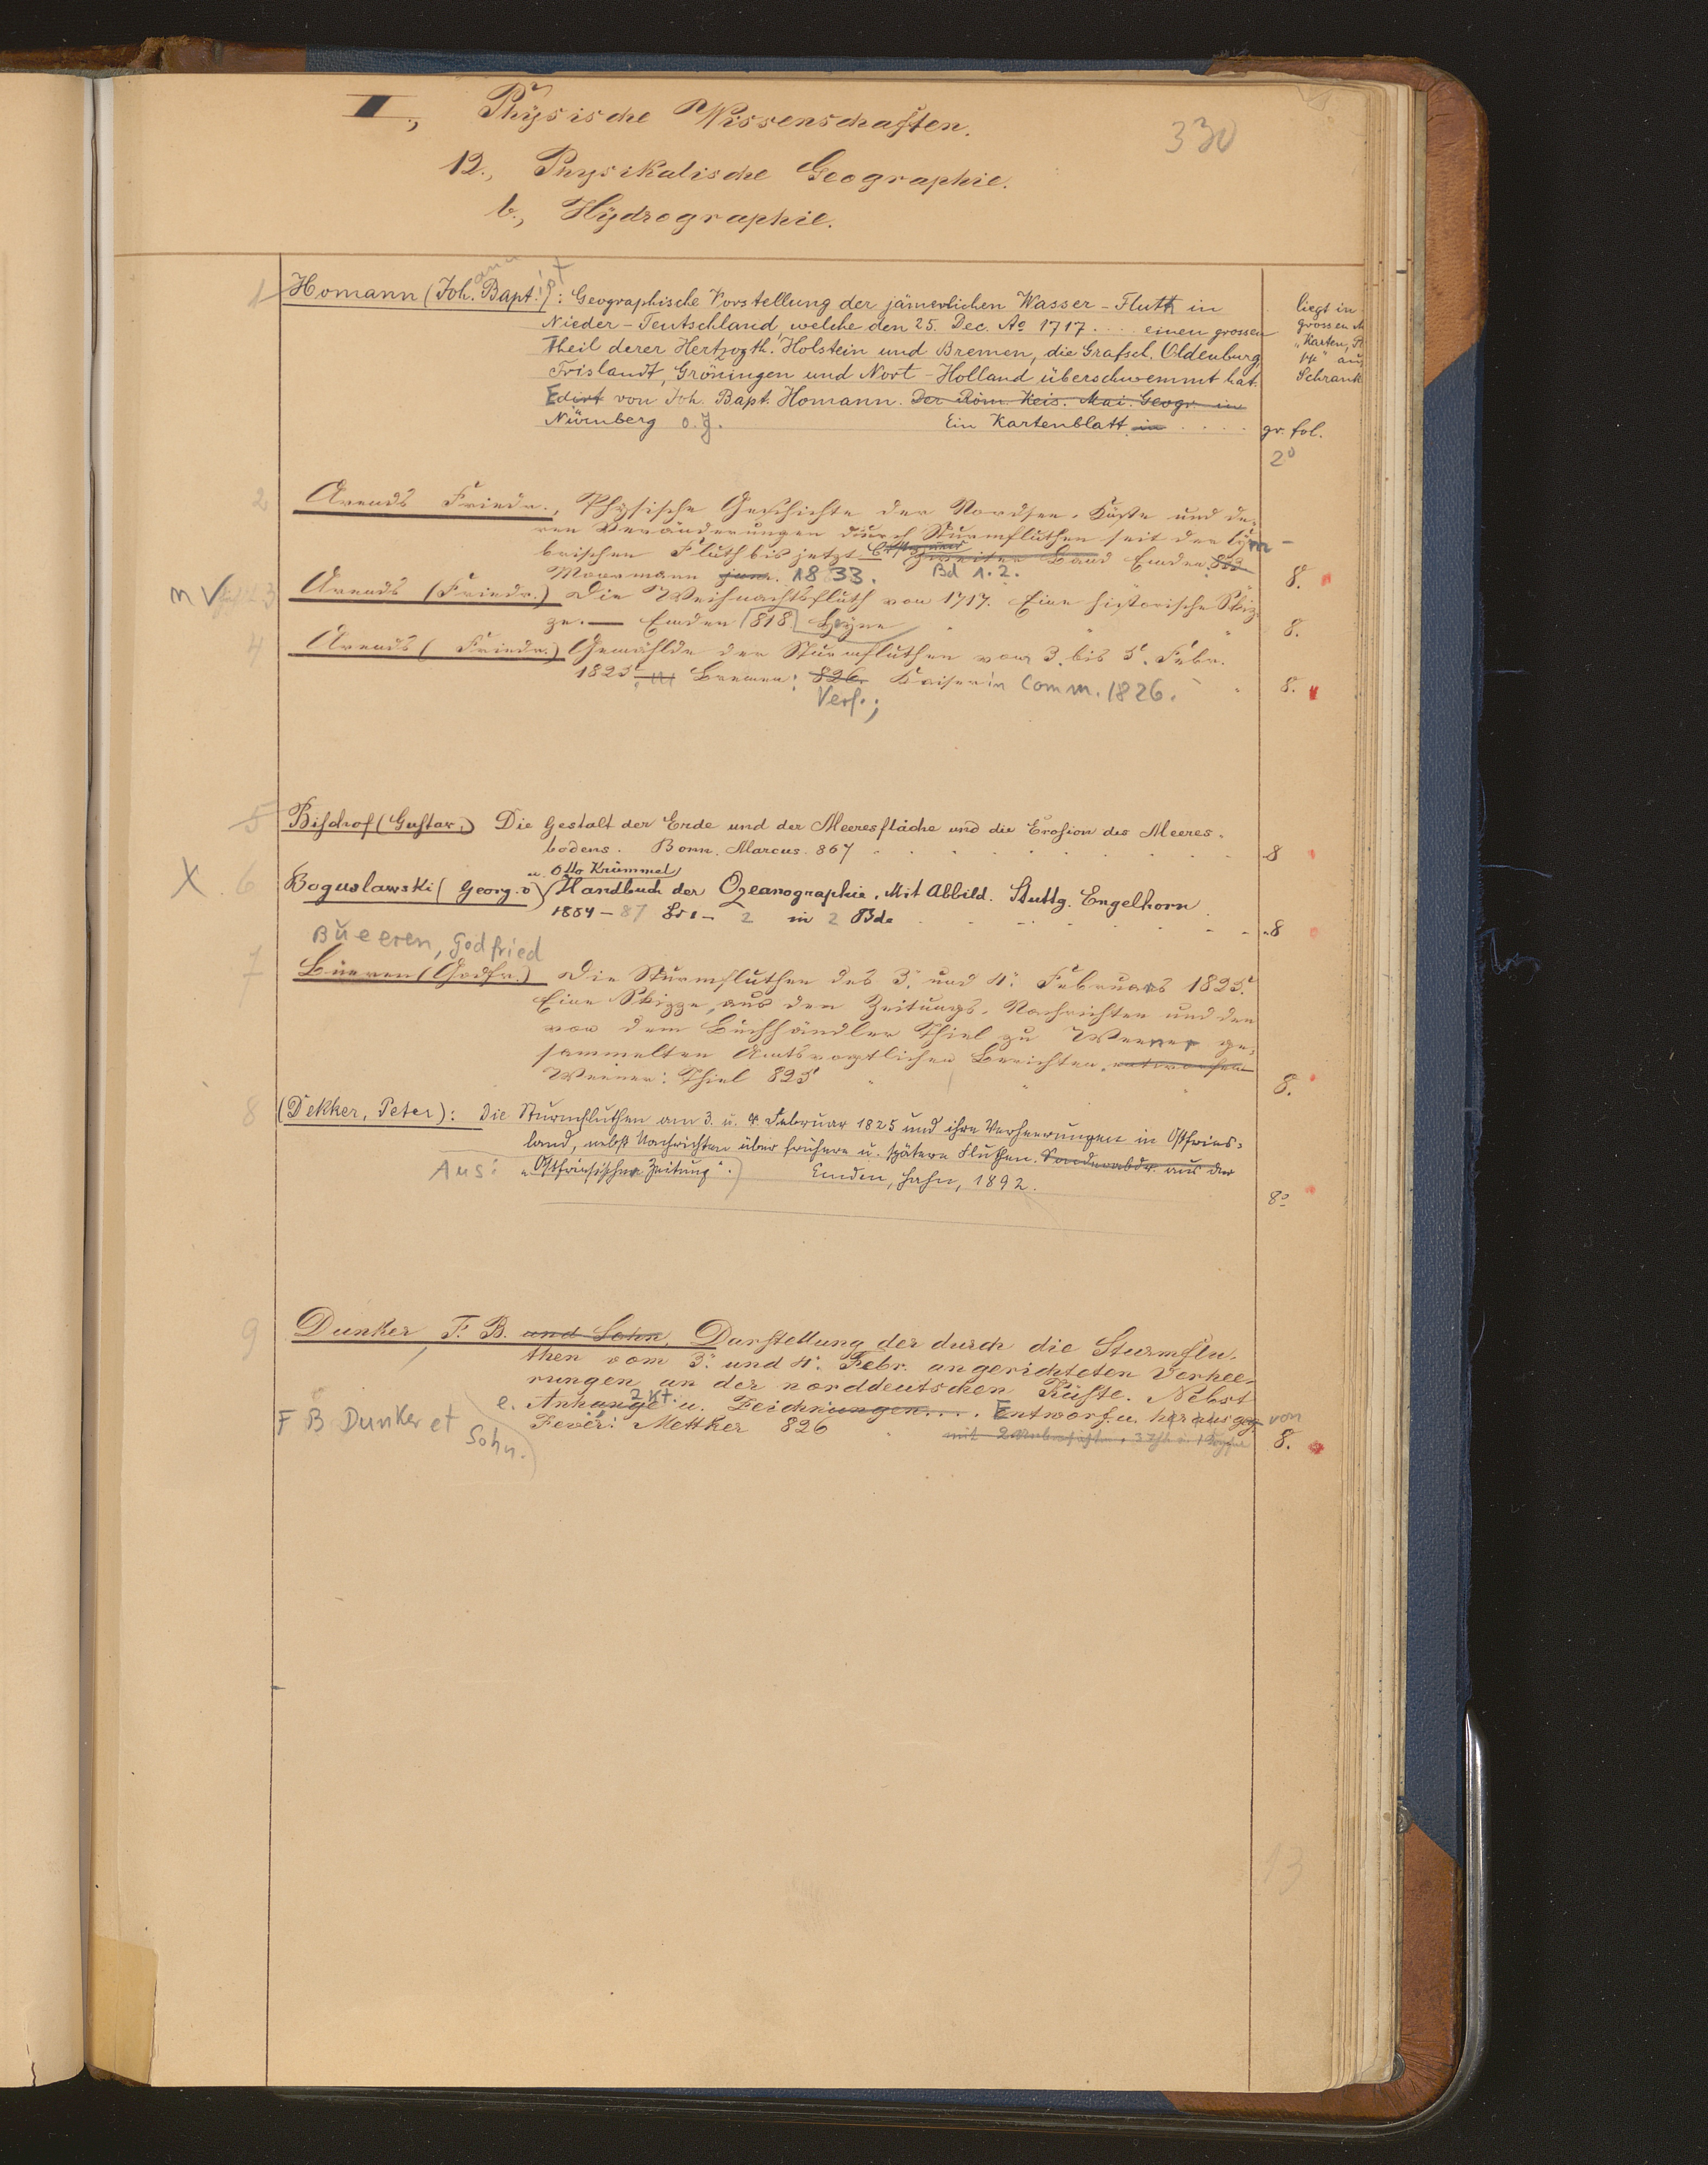 II., Physische Wissenschaften.
330
12., Physikalische Geographie.
b., Hydrographie.
1 Homann (Joh. Bapt.): Geographische Vorstellung der jämerlichen Wasser-Fluth in
Nieder-Teutschland, welche den 25. Dec. Aº 1717 .... einen grossen
Theil derer Hertzogth. Holstein und Bremen, die Grafsch. Oldenburg,
Frislandt, Gröningen und Nort-Holland überschwemmt hat.
Edirt von Joh. Bapt. Homann. Der Röm. Keis. Mai. Geogr. in
Nürnberg o.J. Ein Kartenblatt in .... gr. fol.
2º
liegt in
grossen
"Karten,
14" aus
Schrank
2 Arends Friedr., Physische Geschichte der Nordsee-Küste und de-
ren Veränderungen durch Sturmfluthen seit der cym-
brischen Fluth bis jetzt zweiter Band Emden 833
Moormann jun. 1833. Bd 1.2. 8.
3 Arends (Friedr.) Die Weihnachtsfluth von 1717. Eine historische Skiz-
ze. — Emden 818 Hyner 8.
4 Arends (Friedr.) Gemählde der Sturmfluthen vom 3. bis 5. Febr.
1825 Bremen: 826. Kaiser in Comm. 1826. 8.
Verf.;
5 Bischof (Gustav.) Die Gestalt der Erde und der Meeresfläche und die Erosion des Meeres-
bodens. Bonn. Marcus. 867 8
u. Otto Krümmel
X 6 Boguslawski (Georg. v) Handbuch der Ozeanographie. Mit Abbild. Stuttg. Engelhorn
1884 - 87 Bd 1 - 2 in 2 Bde 8
Bueeren, Godfried
7 Büeren (Godfr.) Die Sturmfluthen des 3. und 4. Februars 1825.
Eine Skizze, aus den Zeitungs-Nachrichten und den
von dem Buchhändler Thiel zu Weener ge-
sammelten Amtsvogtlichen Berichten entworfen
Weener: Thiel 825 8.
8 (Dekker, Peter): Die Sturmfluthen am 3. u. 4. Februar 1825 und ihre Verheerungen in Ostfries-
land, nebst Nachrichten über frühere u. spätere Fluthen. Sonderabdr. aus der
Aus: "Ostfriesischer Zeitung". Emden, Hahn, 1892. 8º
9 Dunker F. B. und Sohn. Darstellung der durch die Sturmflu-
then vom 3. und 4. Febr. angerichteten Verhee-
rungen an der norddeutschen Küste. Nebst
e. Anhange u. 2 Kt. Zeichnungen.... Entworf. u. herausgeg. von
F B Dunker et Sohn.
Jever: Mettker 826 8.
13